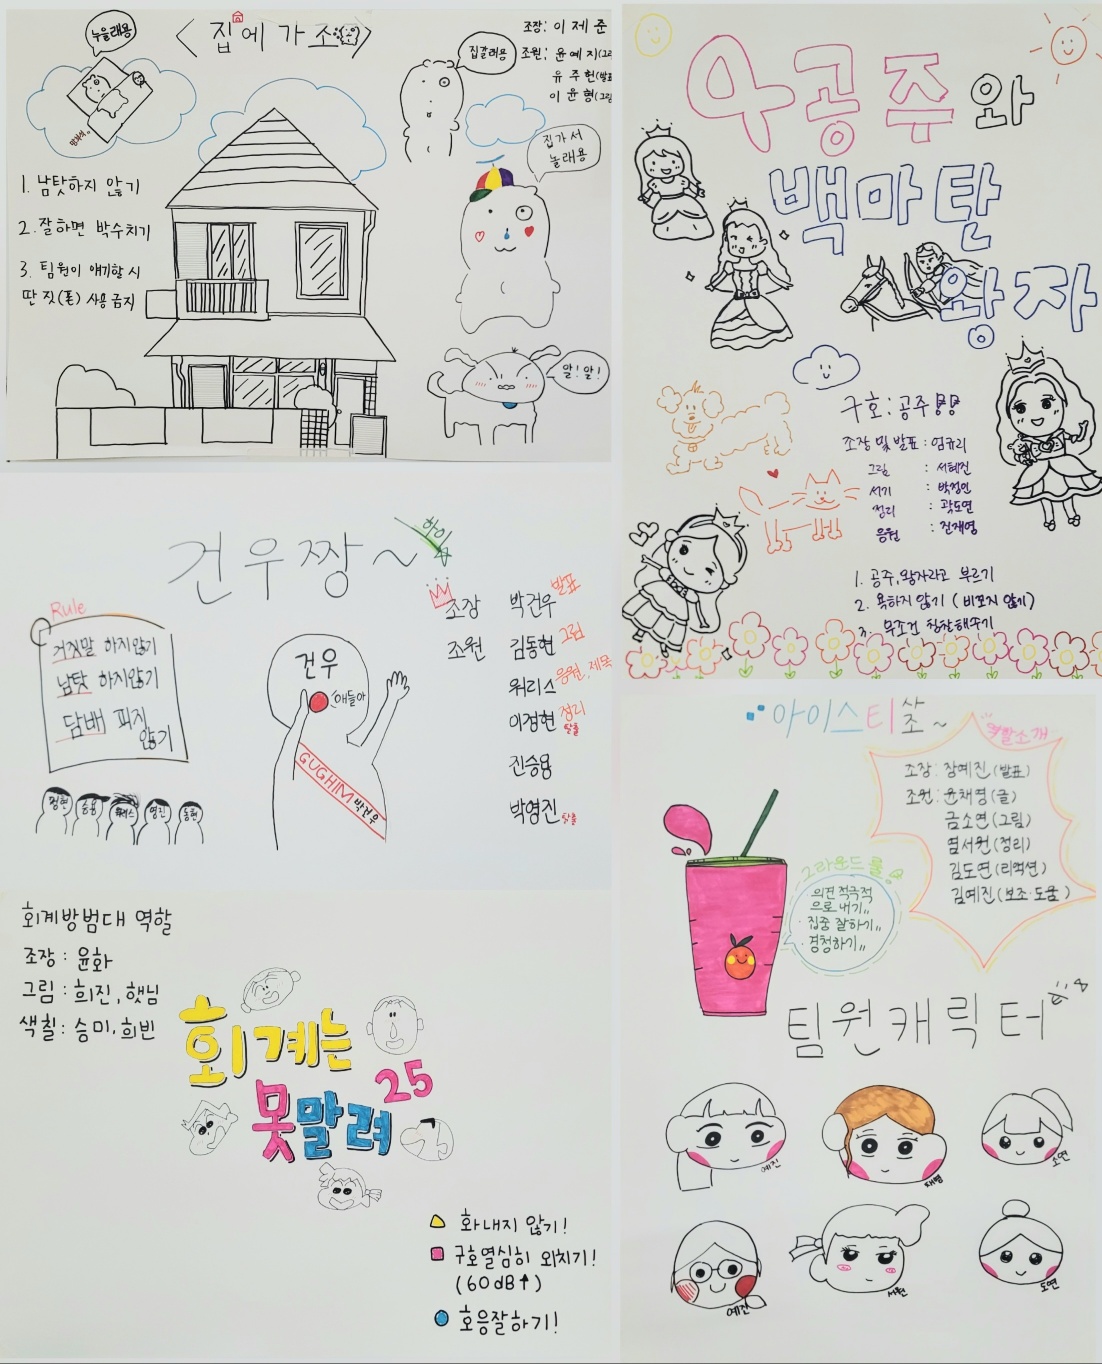 누울래용
<집에가소>
집갈래용
조장: 이제준
조원: 윤예지(그
유주헌(발표
이윤형(그림
집가서
놀래용
1. 남탓하지 않기
2. 잘하면 박수치기
3. 팀원이 얘기할 시
딴 짓(폰) 사용금지
알!알!
우공주와
백마탄
왕자
구호:공주뿅뿅
조장 및 발표 : 엄규리
그림 : 서혜진
서기 : 박정민
정리 : 곽도연
응원 : 진재영
1. 공주, 왕자라고 부르기
2. 욕하지 않기 (비꼬지 않기)
3. 무조건 칭찬해주기
건우짱~
하이
Rule
거짓말 하지않기
남탓 하지않기
담배 피지
않기
정현
승용
워리스
영진
동현
건우
애들아
GUGHIM 박건우
조장 박건우 발표
조원 김동현 그림
워리스 응원, 제목
이정현 정리
탈출
진승용
박영진 탈출
아이스티 사조~
역할소개
조장: 장예진(발표)
조원: 윤채명(글)
금소연(그림)
염서원(정리)
김도연(리액션)
김예진(보조·도움)
그라운드 룰
의견 적극적
으로 내기
· 집중 잘하기
· 경청하기
팀원캐릭터
예진
채명
소연
예진
서원
도연
회계방범대 역할
조장 : 윤화
그림 : 희진, 햇님
색칠 : 승미, 희빈
회계는
못말려
25
화내지 않기!
구호열심히 외치기!
(60dB↑)
호응잘하기!